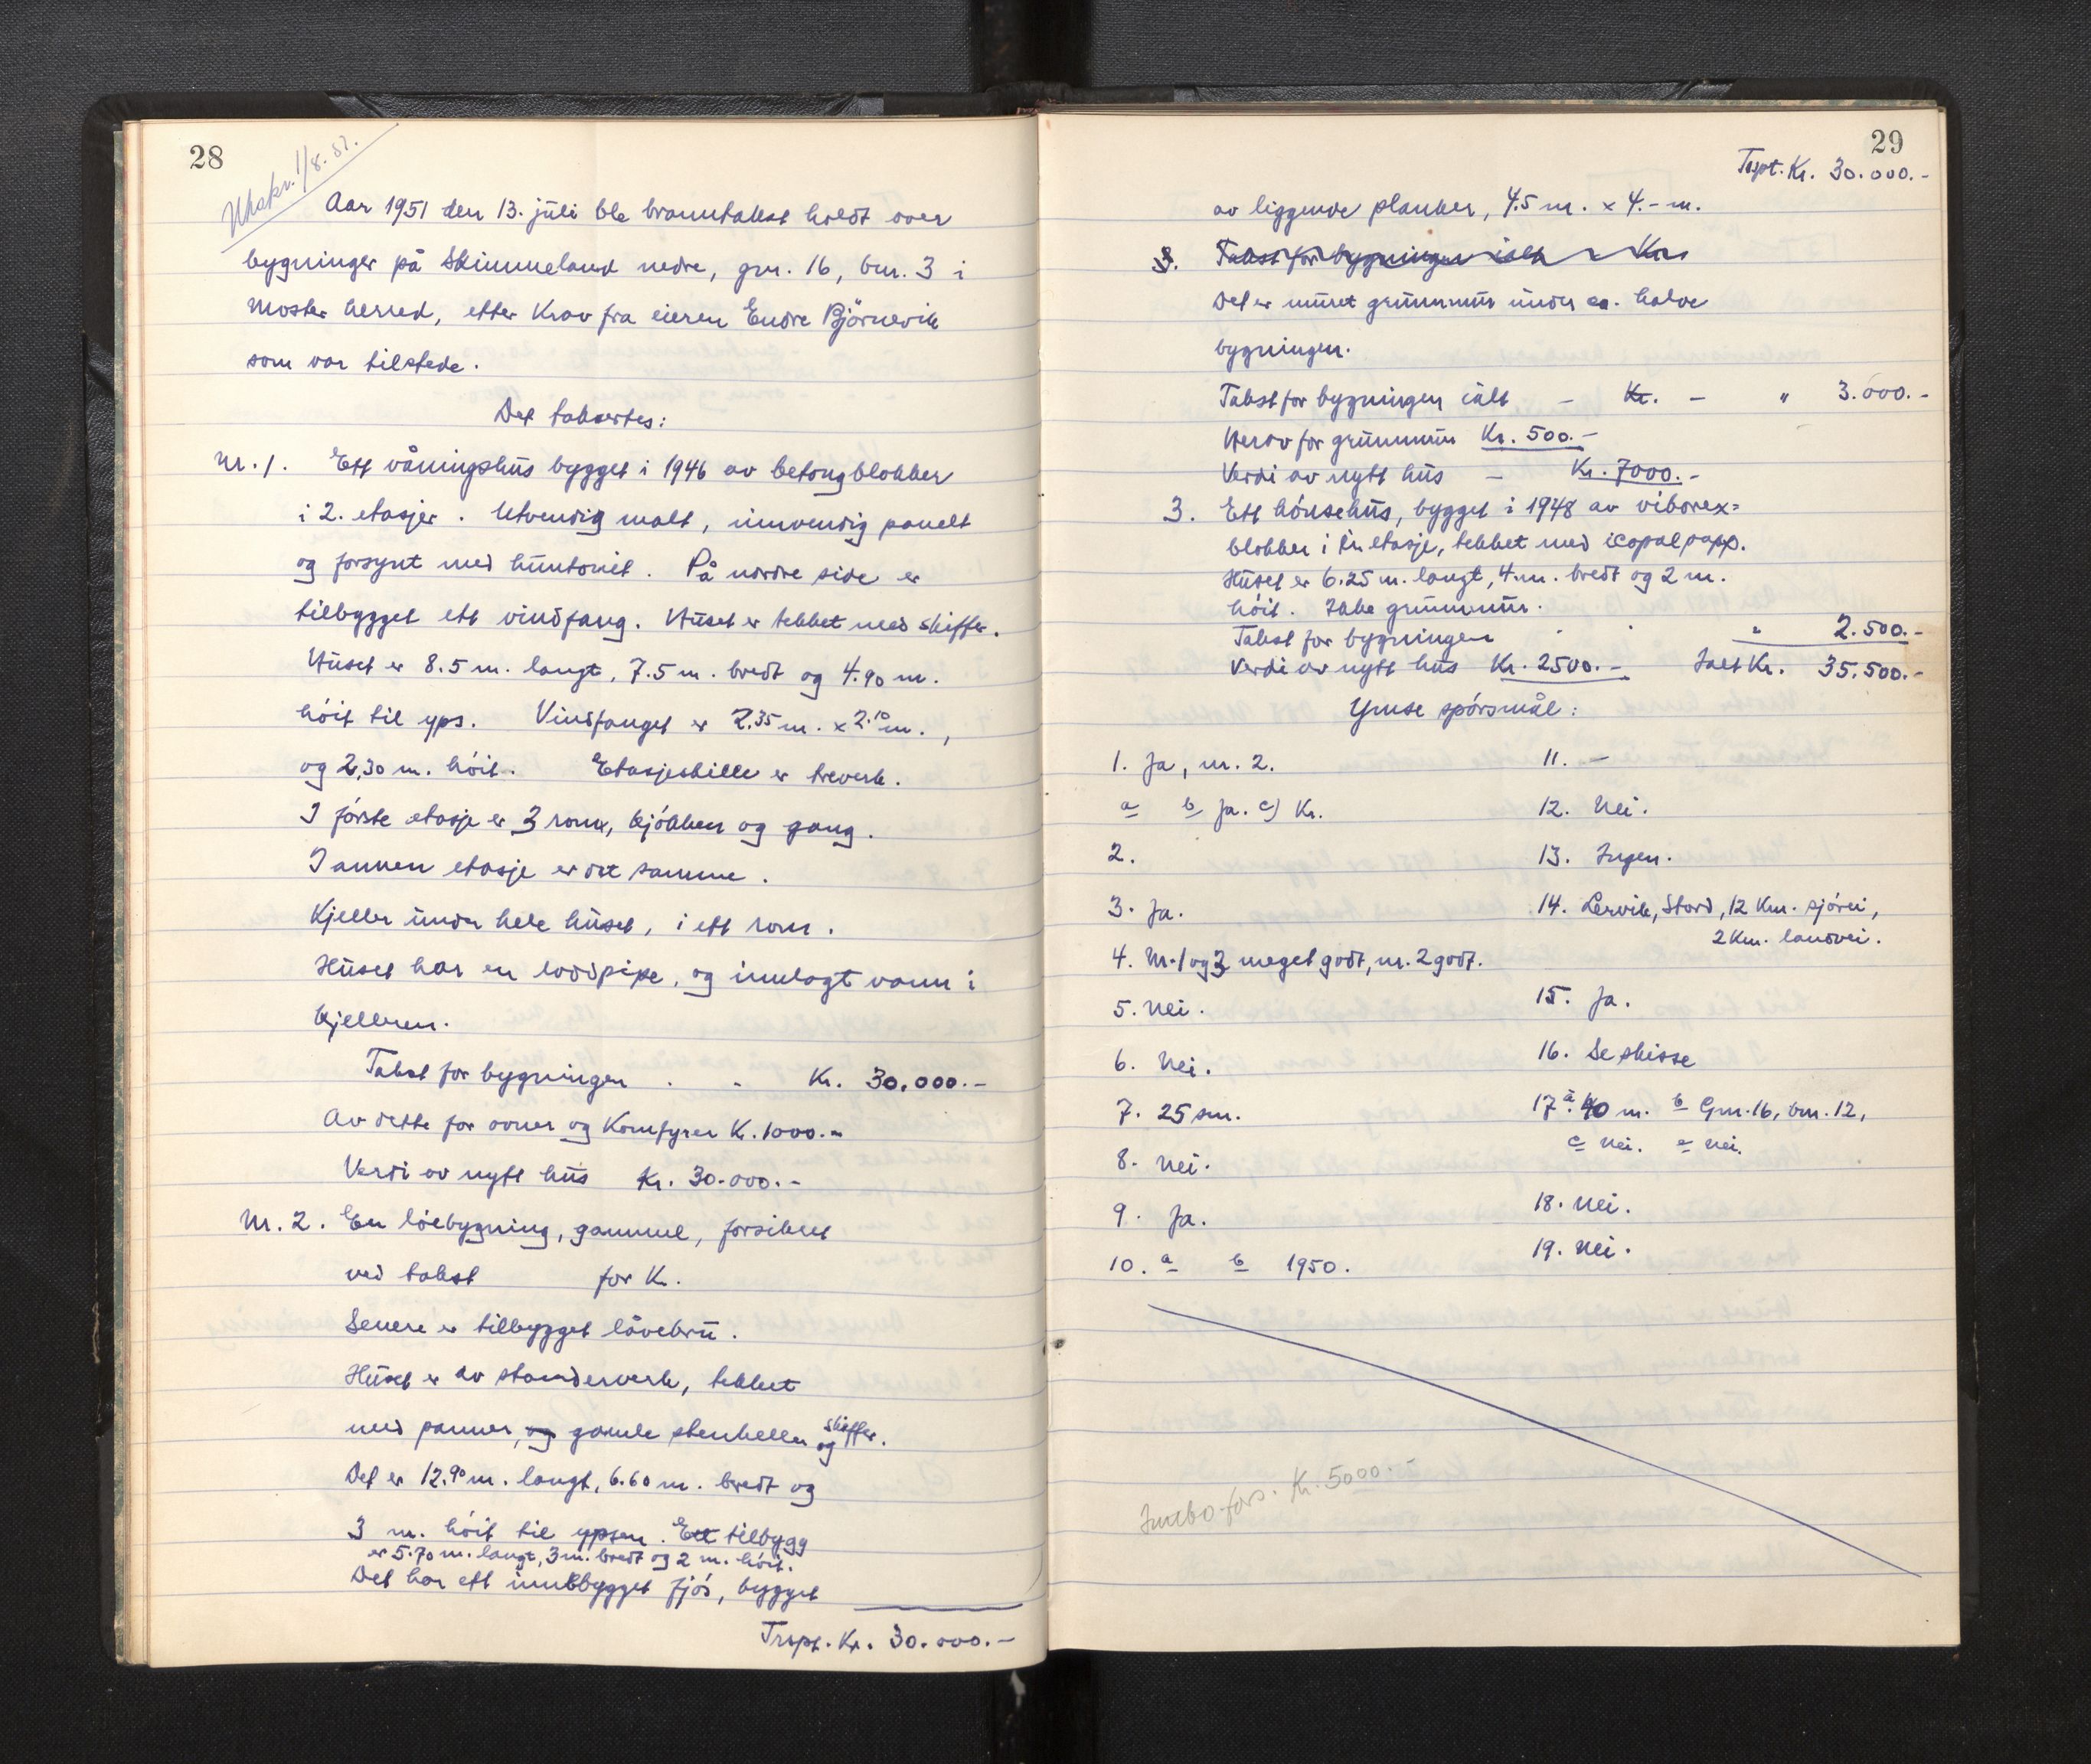 28
Utskr. 1/8. 51.
Aar 1951 den 13. juli ble branntakst holdt over
bygninger på Skimmeland nedre, gnr. 16, bnr. 3 i
Moster herred, etter Krav fra eieren Endre Björnevik
som var tilstede.
Det taksertes:
Nr. 1. Ett våningshus bygget i 1946 av betongblokker
i 2. etasjer. Utvendig malt, innvendig panelt
og forsynt med huntonit. På nordre side er
tilbygget ett vindfang. Huset er tekket med skiffer.
Huset er 8.5 m. langt, 7.5 m. bredt og 4.90 m.
höit til yps. Vindfanget er 2.35 m. x 2.10 m.,
og 2,30 m. höit. Etasjeskille er treverk.
I förste etasje er 3 rom, kjökken og gang.
I annen etasje er det samme.
Kjeller under hele huset, i ett rom.
Huset har en loddpipe, og innlagt vann i
kjelleren.
Takst for bygningen . - Kr. 30.000.-
Av dette for ovner og Komfyrer Kr. 1000.-
Verdi av nytt hus Kr. 30.000.-
Nr. 2. En löebygning, gammel, forsikret
ved takst for Kr.
Senere er tilbygget låvebru.
Huset er av standerverk, tekket
med panner, og gamle stenheller og skiffer.
Det er 12.90 m. langt, 6.60 m. bredt og
3 m. höit til ypsen. Ett tilbygg
er 5.70 m. langt, 3 m. bredt og 2 m. höit.
Det har ett innebygget fjös, bygget
Trspt. Kr. 30.000.-
29
Trspt. Kr. 30.000.-
av liggende planker, 4.5 m. x 4.- m.
3. Takst for bygningen ialt - Kr.
Det er muret grunnmur under ca. halve
bygningen.
Takst for bygningen ialt - Kr. - " 3.000.-
Herav for grunnmur Kr. 500.-
Verdi av nytt hus - Kr. 7000.-
3. Ett hönsehus, bygget i 1948 av viborex=
blokker i en etasje, tekket med icopal papp.
Huset er 6.25 m. langt, 4 m. bredt og 2 m.
höit. Ikke grunnmur.
Takst for bygningen . . " 2.500.-
Verdi av nytt hus Kr. 2500.- Ialt Kr. 35.500.-
Ymse spörsmål:
1. Ja, nr. 2.
a b Ja. c) Kr.
2.
3. Ja.
4. Nr. 1 og 3 meget godt, nr. 2 godt.
5. Nei.
6. Nei.
7. 25 sm.
8. Nei.
9. Ja.
10. a b 1950.
11. -
12. Nei.
13. Ingen.
14. Lervik, Stord, 12 Km. sjövei,
2 Km. landvei.
15. Ja.
16. Se skisse
17 a. 40 m. b Gnr. 16, bnr. 12,
c Nei. e Nei.
18. Nei.
19. Nei.
Innbo fors. Kr. 5000.-